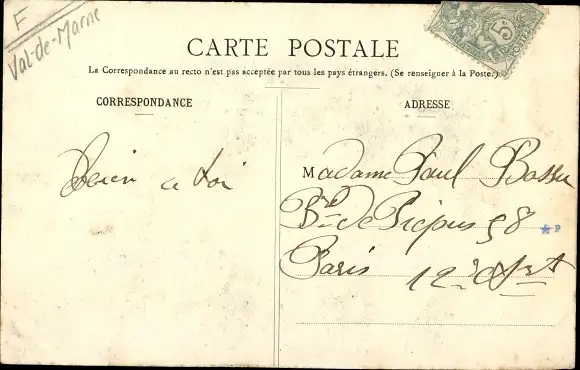 F
Val-de-Marne
5c
POSTES
CARTE POSTALE
La Correspondance au recto n'est pas acceptée par tous les pays étrangers. (Se renseigner à la Poste.)
CORRESPONDANCE
ADRESSE
bien a toi
Madame Paul Bassu
Bd de Picpus 58
Paris 12e Arrt